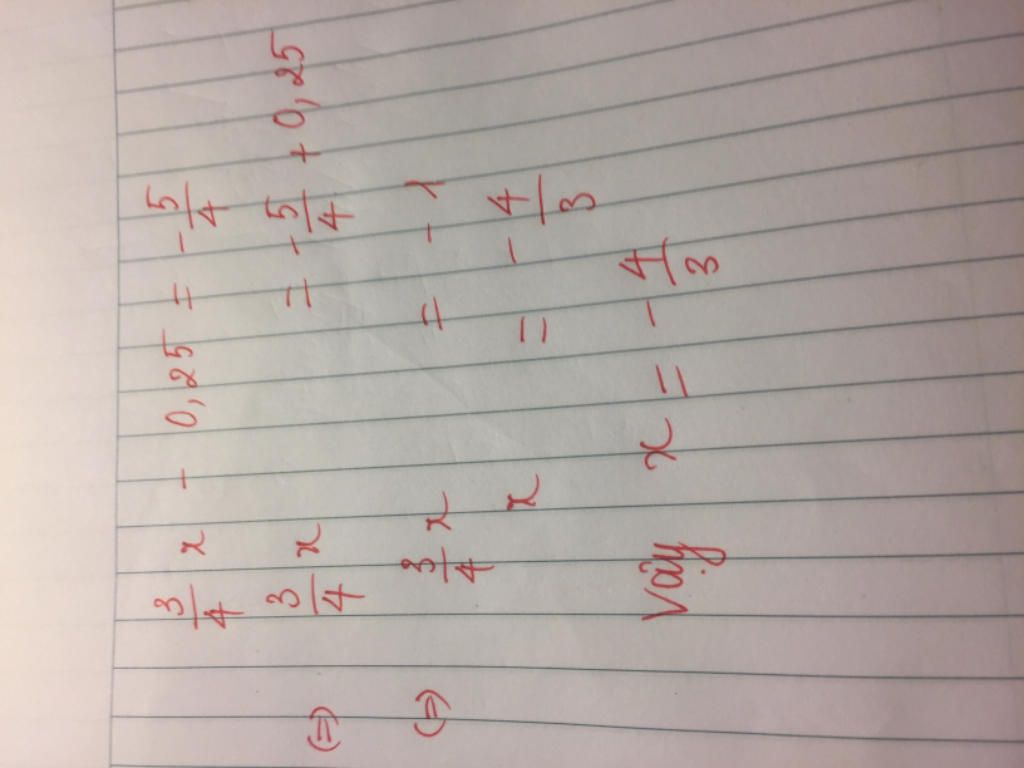 3/4 x - 0,25 = - 5/4
(=) 3/4 x = - 5/4 + 0,25
(=) 3/4 x = - 1
x = - 4/3
Vậy x = - 4/3